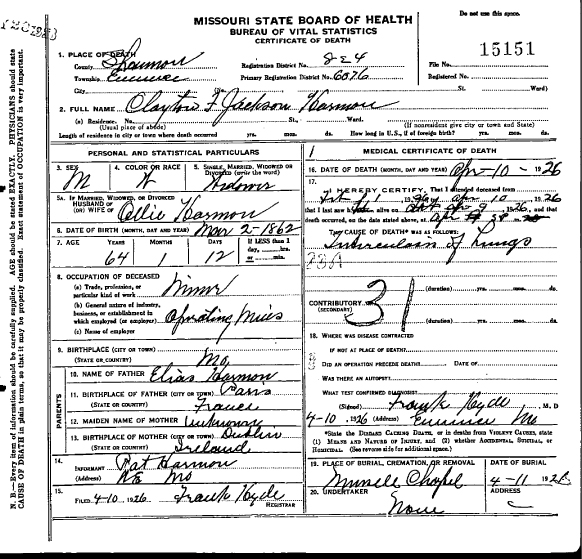 MISSOURI STATE BOARD OF HEALTH
BUREAU OF VITAL STATISTICS
CERTIFICATE OF DEATH
Do not use this space.
15151
1. PLACE OF DEATH
County Shannon Registration District No. 824 File No.
Township Eminence Primary Registration District No. 6076 Registered No.
City No. St. Ward)
2. FULL NAME Clayton F Jackson Harmon
(a) Residence. No. St., Ward.
(Usual place of abode) (If nonresident give city or town and State)
Length of residence in city or town where death occurred yrs. mos. ds. How long in U.S., if of foreign birth? yrs. mos. ds.
PERSONAL AND STATISTICAL PARTICULARS
3. SEX M
4. COLOR OR RACE W
5. SINGLE, MARRIED, WIDOWED OR DIVORCED (write the word) Widower
5A. IF MARRIED, WIDOWED, OR DIVORCED
HUSBAND OF
(OR) WIFE OF Ollie Harmon
6. DATE OF BIRTH (MONTH, DAY AND YEAR) Mar 2-1862
7. AGE YEARS MONTHS DAYS If LESS than 1 day, hrs. or min.
64 1 12
8. OCCUPATION OF DECEASED
(a) Trade, profession, or particular kind of work Miner
(b) General nature of industry, business, or establishment in which employed (or employer) Operating Mines
(c) Name of employer
9. BIRTHPLACE (CITY OR TOWN)
(STATE OR COUNTRY) Mo
PARENTS
10. NAME OF FATHER Elias Harmon
11. BIRTHPLACE OF FATHER (CITY OR TOWN) Paris
(STATE OR COUNTRY) France
12. MAIDEN NAME OF MOTHER Unknown
13. BIRTHPLACE OF MOTHER (CITY OR TOWN) Dublin
(STATE OR COUNTRY) Ireland
14. INFORMANT Pat Harmon
(Address) Mo
15. FILED 4-10 1926 Frank Hyde
REGISTRAR
MEDICAL CERTIFICATE OF DEATH
16. DATE OF DEATH (MONTH, DAY AND YEAR) Apr-10-1926
17.
I HEREBY CERTIFY, That I attended deceased from
apr 10, 1926
that I last saw alive on 9, 1926, and that
death occurred, on the date stated above, at
THE CAUSE OF DEATH* WAS AS FOLLOWS:
Tuberculosis of Lungs
31
(duration) yrs. mos. ds.
CONTRIBUTORY
(SECONDARY)
(duration) yrs. mos. ds.
18. WHERE WAS DISEASE CONTRACTED
IF NOT AT PLACE OF DEATH?
DID AN OPERATION PRECEDE DEATH? DATE OF
WAS THERE AN AUTOPSY?
WHAT TEST CONFIRMED DIAGNOSIS?
(Signed) Frank Hyde, M. D.
4-10, 1926 (Address) Eminence Mo
*State the DISEASE CAUSING DEATH, or in deaths from VIOLENT CAUSES, state
(1) MEANS AND NATURE OF INJURY, and (2) whether ACCIDENTAL, SUICIDAL, or
HOMICIDAL. (See reverse side for additional space.)
19. PLACE OF BURIAL, CREMATION, OR REMOVAL DATE OF BURIAL
Chapel 4-11 1926
20. UNDERTAKER ADDRESS
None
N. B.—Every item of information should be carefully supplied. AGE should be stated EXACTLY. PHYSICIANS should state
CAUSE OF DEATH in plain terms, so that it may be properly classified. Exact statement of OCCUPATION is very important.